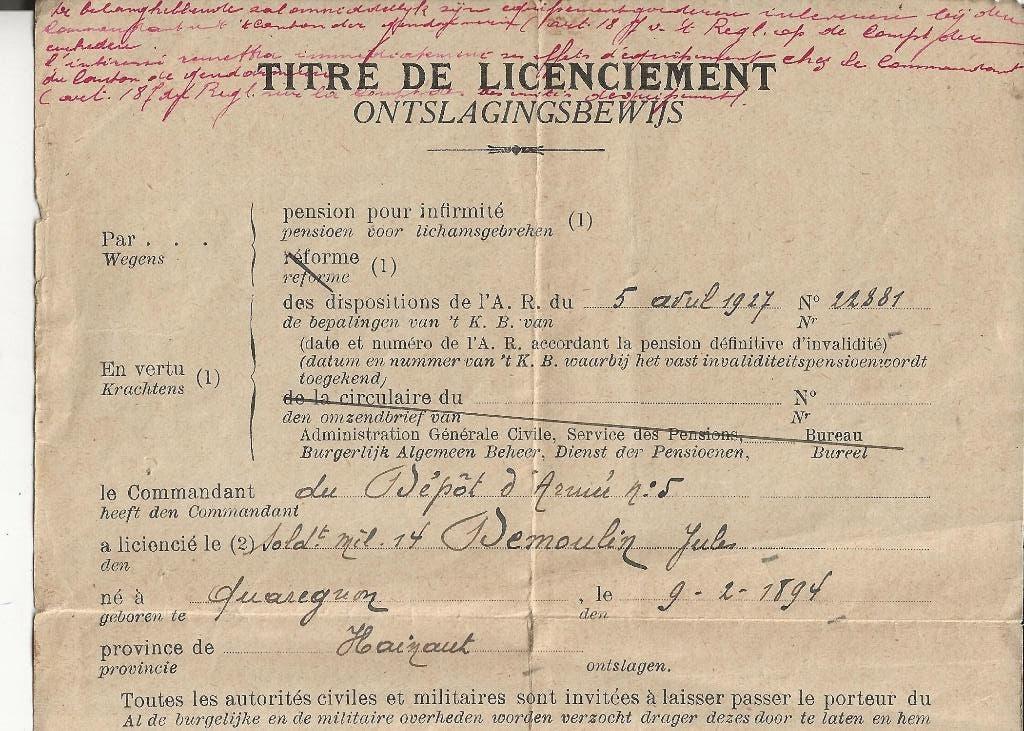 De belanghebbende zal onmiddellijk zijn equipementgoederen inleveren bij den
Commandant v. 't Canton der gendarmerie (art. 18 v. 't Regl. op de compt. der
eenheden.
L'intéressé remettra immédiatement ses effets d'équipement chez le Commandant
du Canton de gendarmerie
(art. 18 du Regl. sur la des unités
TITRE DE LICENCIEMENT
ONTSLAGINGSBEWIJS
pension pour infirmité (1)
pensioen voor lichamsgebreken
Par . . .
Wegens
réforme (1)
reforme
des dispositions de l'A. R. du 5 avril 1927 No 22881
de bepalingen van 't K. B. van Nr
(date et numéro de l'A. R. accordant la pension définitive d'invalidité)
(datum en nummer van 't K. B. waarbij het vast invaliditeitspensioen wordt
toegekend)
En vertu (1)
Krachtens
de la circulaire du No
den omzendbrief van Nr
Administration Générale Civile, Service des Pensions, Bureau
Burgerlijk Algemeen Beheer, Dienst der Pensioenen, Bureel
le Commandant du Dépôt d'Armée no 5
heeft den Commandant
a liciencié le (2) Soldt mil. 14 Demoulin Jules
den
né à Quaregnon , le 9 - 2 - 1894
geboren te den
province de Hainaut
provincie ontslagen.
Toutes les autorités civiles et militaires sont invitées à laisser passer le porteur du
Al de burgelijke en de militaire overheden worden verzocht drager dezes door te laten en hem